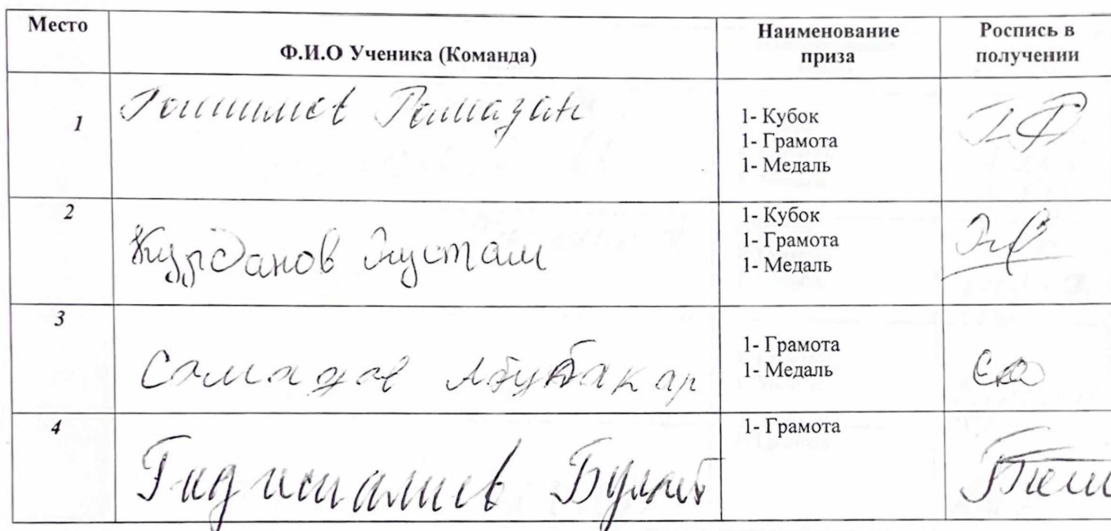 Место Ф.И.О Ученика (Команда) Наименование приза Роспись в получении
1 Рамазан 1- Кубок
1- Грамота
1- Медаль
2 Курбанов Рустам 1- Кубок
1- Грамота
1- Медаль
3 Самадов Абубакар 1- Грамота
1- Медаль
4 Булат 1- Грамота